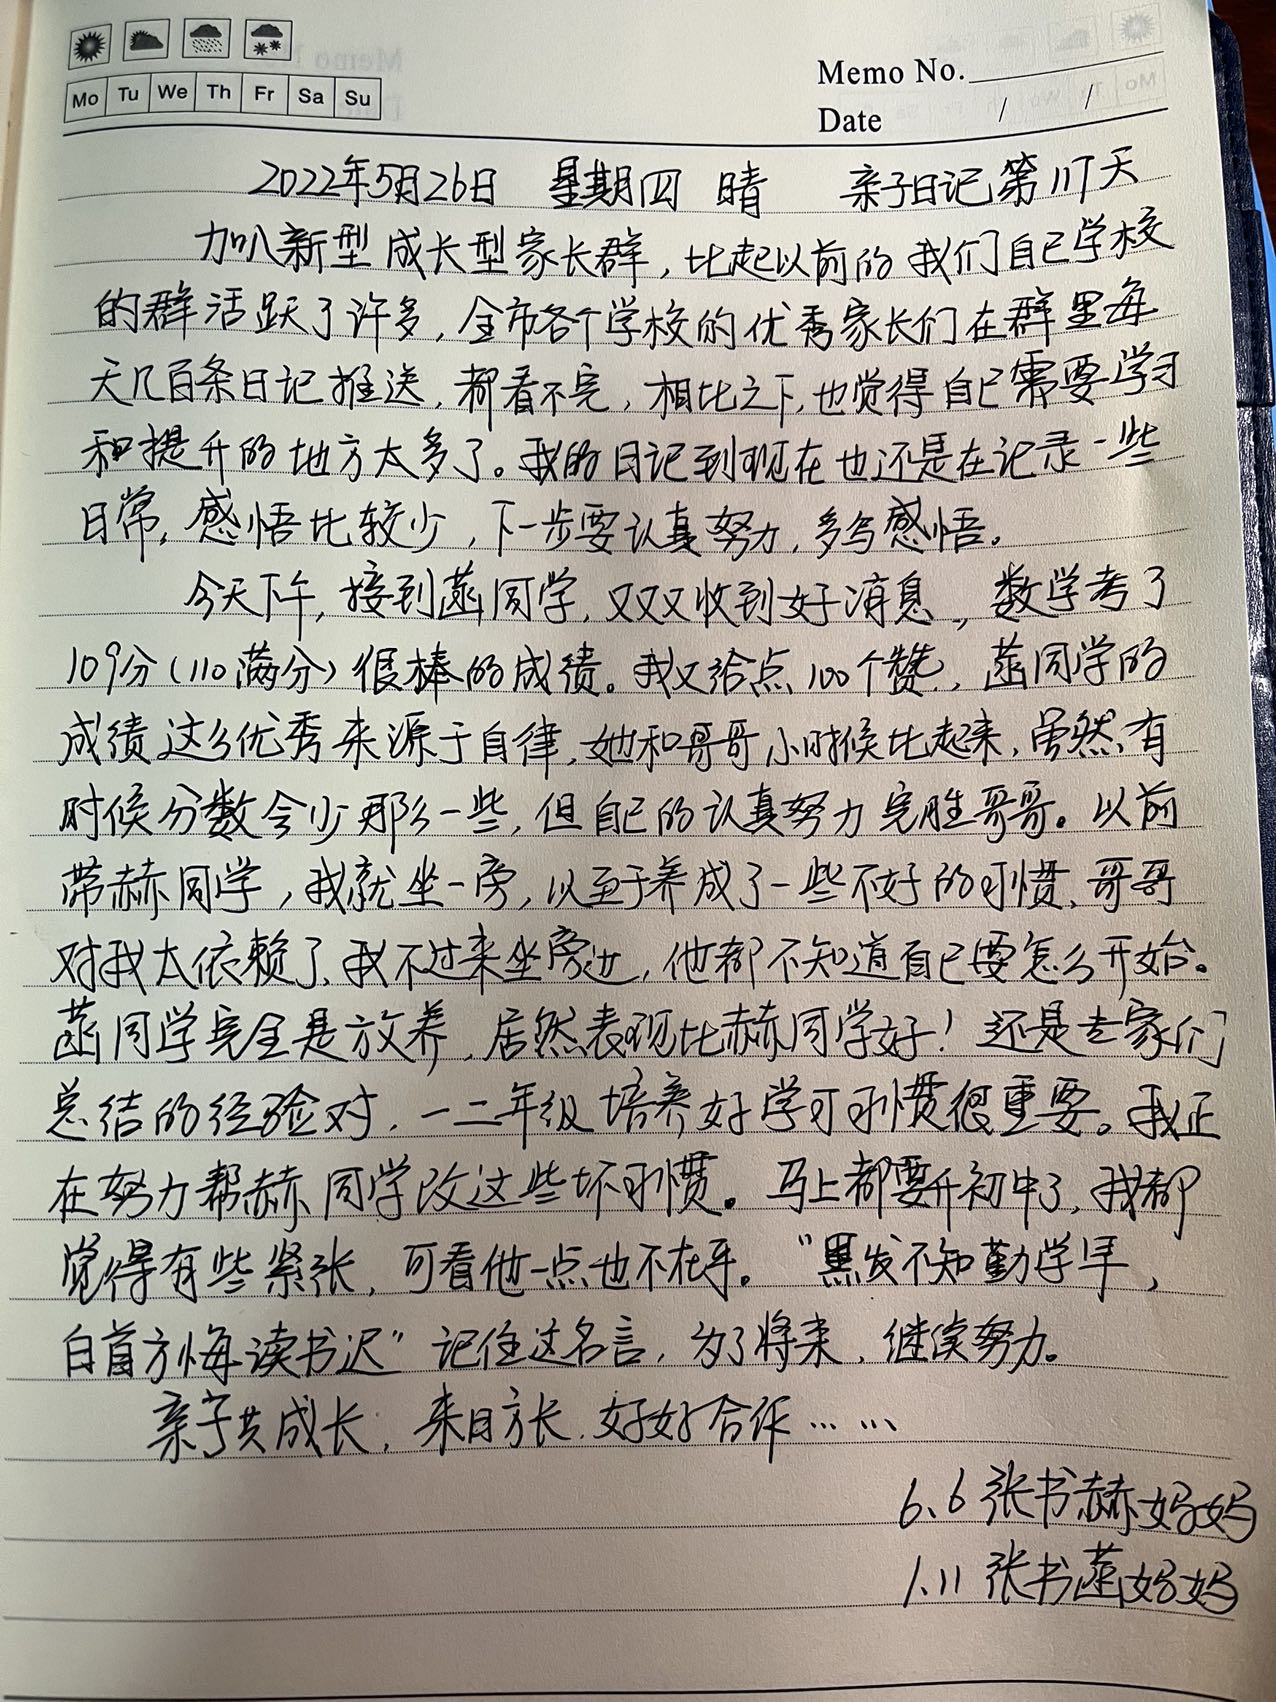 Mo Tu We Th Fr Sa Su
Memo No.
Date / /
2022年5月26日 星期四 晴 亲子日记第117天
加入新型成长型家长群，比起以前的我们自己学校
的群活跃了许多，全市各个学校的优秀家长们在群里每
天几百条日记推送，都看不完，相比之下，也觉得自己需要学习
和提升的地方太多了。我的日记到现在也还是在记录一些
日常，感悟比较少，下一步要认真努力，多写感悟。
今天下午，接到菡同学，又双叒收到好消息，数学考了
109分（110满分）很棒的成绩。我又给点100个赞，菡同学的
成绩这么优秀来源于自律，她和哥哥小时候比起来，虽然有
时候分数会少那么一些，但自己的认真努力完胜哥哥。以前
带赫同学，我就坐一旁，以至于养成了一些不好的习惯，哥哥
对我太依赖了，我不过来坐旁边，他都不知道自己要怎么开始。
菡同学完全是放养，居然表现比赫同学好！还是专家们
总结的经验对，一二年级培养好学习习惯很重要。我正
在努力帮赫同学改这些坏习惯。马上都要升初中了，我都
觉得有些紧张，可看他一点也不在乎。“黑发不知勤学早，
白首方悔读书迟”记住这名言，为了将来，继续努力。
亲子共成长，来日方长，好好合作……
6.6 张书赫妈妈
1.11 张书菡妈妈